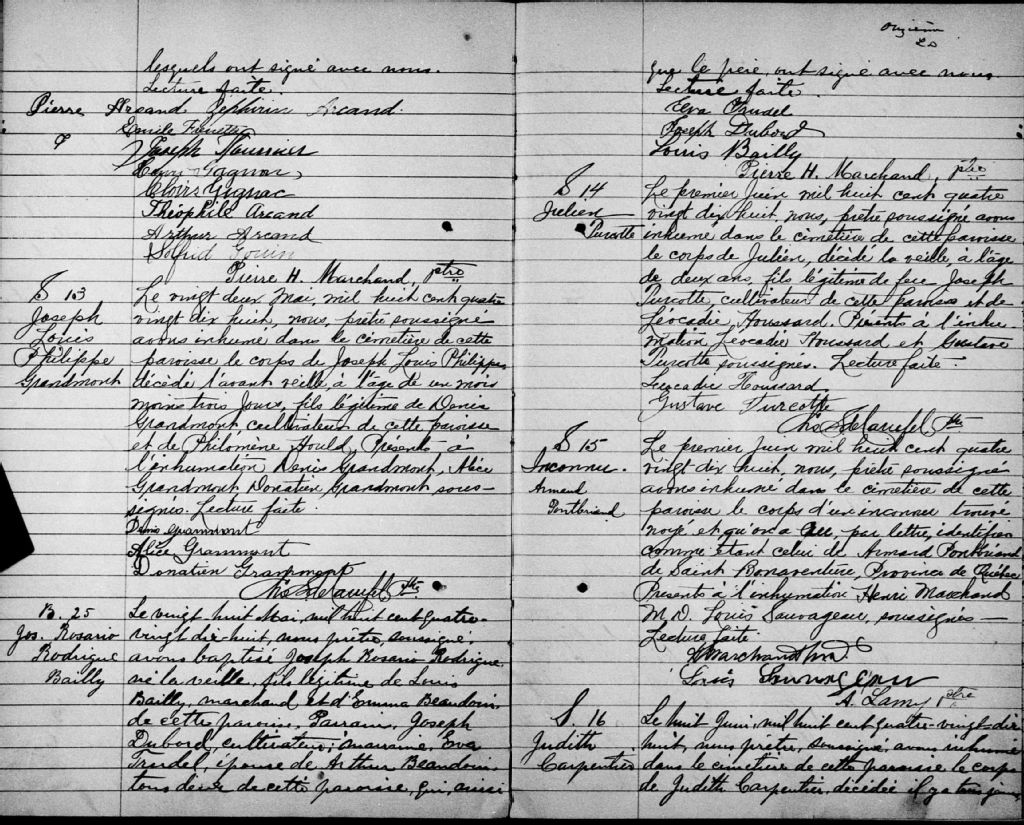 lesquels ont signé avec nous.
Lecture faite.
Pierre Arcand Zephirin Arcand.
Emile
Joseph
Cloiis Gignac
Théophile Arcand
Arthur Arcand
Gouin
Pierre H. Marchand, ptre
S 13
Joseph
Louis
Philippe
Grandmont
Le vingt deux Mai, mil huit cent quatre
vingt dix huit, nous, prêtre soussigné
avons inhumé dans le cimetière de cette
paroisse le corps de Joseph Louis Philippe
décédé l'avant veille, à l'âge de un mois
moins trois jours, fils légitime de Denis
Grandmont, cultivateur de cette paroisse
et de Philomène Hould, Présents à
l'inhumation Denis Grandmont, Alice
Grandmont Donatien Grandmont sous-
signés. Lecture faite.
Denis Grammont
Alice Grammont
Donatien Grammont
ptre
B. 25
Jos. Rosario
Rodrigue
Bailly
Le vingt-huit Mai, mil huit cent quatre-
vingt dix-huit, nous prêtre, soussigné,
avons baptisé Joseph Rosario Rodrigue
né la veille, fils légitime de Louis
Bailly, marchand et d'Emma Beaudoin
de cette paroisse. Parrain, Joseph
Dubord, cultivateur; marraine, Eva
Trudel, épouse de Arthur Beaudoin
tous deux de cette paroisse, qui, ainsi
Onzième
que le père, ont signé avec nous.
Lecture faite.
Eva Trudel
Joseph Dubord
Louis Bailly
Pierre H. Marchand, ptre
S 14
Julien
Turcotte
Le premier Juin mil huit cent quatre
vingt dix huit, nous, prêtre soussigné avons
inhumé dans le cimetière de cette paroisse
le corps de Julien, décédé la veille, à l'âge
de deux ans, fils légitime de feu Joseph
Turcotte, cultivateur de cette paroisse et de
Léocadie Houssard. Présents à l'inhu-
mation Léocadie Houssard et Gustave
Turcotte soussignés. Lecture faite.
Léocadie Houssard
Gustave Turcotte
ptre
S 15
Inconnu.
Armand
Pontbriand
Le premier Juin mil huit cent quatre
vingt dix huit, nous, prêtre soussigné
avons inhumé dans le cimetière de cette
paroisse le corps d'un inconnu trouvé
noyé et qu'on a cru, par lettre, identifier
comme étant celui de Armand Pontbriand
de Saint Bonaventure, Province de Québec
Présents à l'inhumation Henri Marchand
M.D. Louis Sauvageau, soussignés -
Lecture faite
H Marchand M.D.
Louis Sauvageau
A. Lamy ptre
S. 16
Judith
Carpentier
Le huit Juin, mil huit cent quatre-vingt-dix
huit, nous prêtre, soussigné, avons inhumé
dans le cimetière de cette paroisse le corps
de Judith Carpentier, décédée il y a trois jours